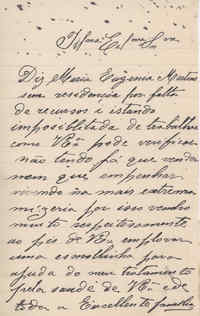 Illma. Exma. Snra.
Diz Maria Eugenia Martins
sem residencia por falta
de recursos i istando
impossiblitada de trabalhar
como VExa pode verificar
não tendo já que vender
nem que empenhar
vivendo na mais extrema
mizeria por isso venho
muito respeitosamente
ao pes de VExa emplorar
uma esmolinha para
ajuda do meu
pela saude de VExa e de
toda a Excellente familia